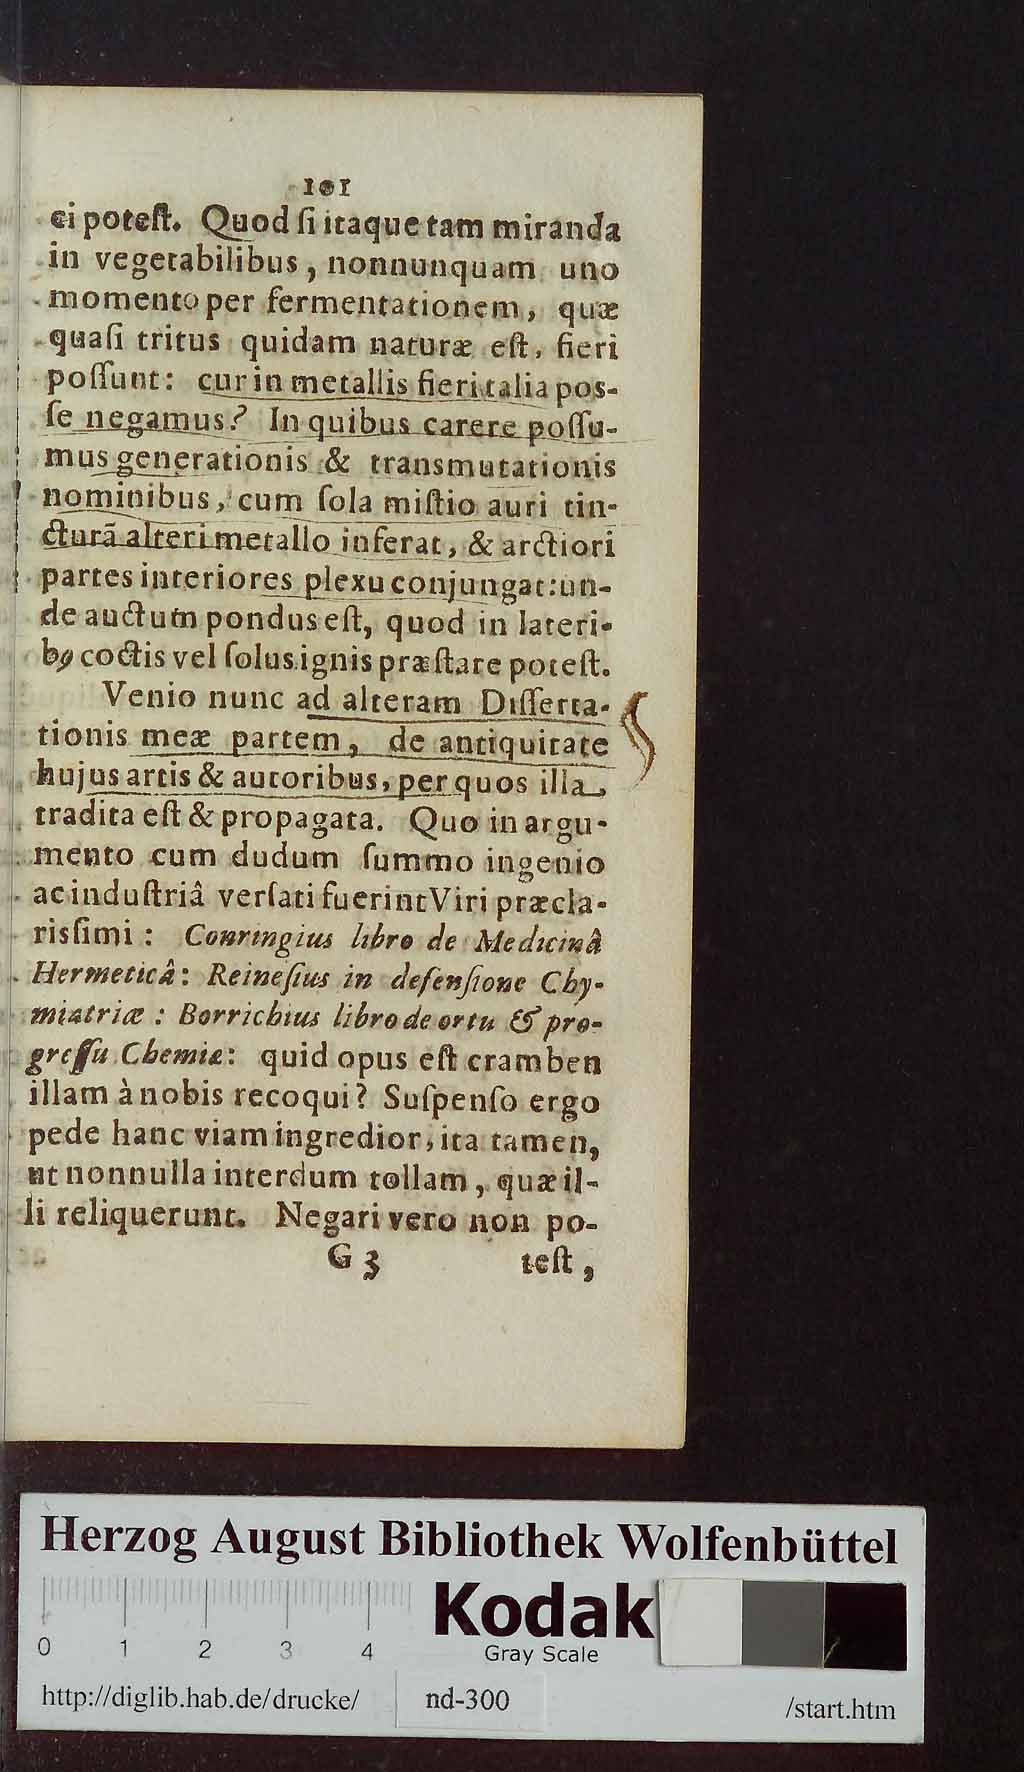 101
ei poteſt. Quod ſi itaque tam miranda
in vegetabilibus, nonnunquam uno
momento per fermentationem, quæ
quaſi tritus quidam naturæ eſt, fieri
poſſunt: cur in metallis fieri talia pos-
ſe negamus? In quibus carere poſſu-
mus generationis & transmutationis
nominibus, cum ſola miſtio auri tin-
cturã alteri metallo inferat, & arctiori
partes interiores plexu conjungat: un-
de auctum pondus eſt, quod in lateri-
bꝰ coctis vel ſolus ignis præſtare poteſt.
Venio nunc ad alteram Diſſerta-
tionis meæ partem, de antiquitate
hujus artis & autoribus, per quos illa,
tradita eſt & propagata. Quo in argu-
mento cum dudum ſummo ingenio
ac induſtriâ verſati fuerint Viri præcla-
risſimi: Conringius libro de Medicinâ
Hermeticâ: Reineſius in defenſione Chy-
miatriæ: Borrichius libro de ortu & pro-
greſſu Chemiæ: quid opus eſt cramben
illam à nobis recoqui? Suſpenſo ergo
pede hanc viam ingredior, ita tamen,
ut nonnulla interdum tollam, quæ il-
li reliquerunt. Negari vero non po-
G 3 teſt,
Herzog August Bibliothek Wolfenbüttel
Kodak
Gray Scale
0 1 2 3 4
http://diglib.hab.de/drucke/ nd-300 /start.htm